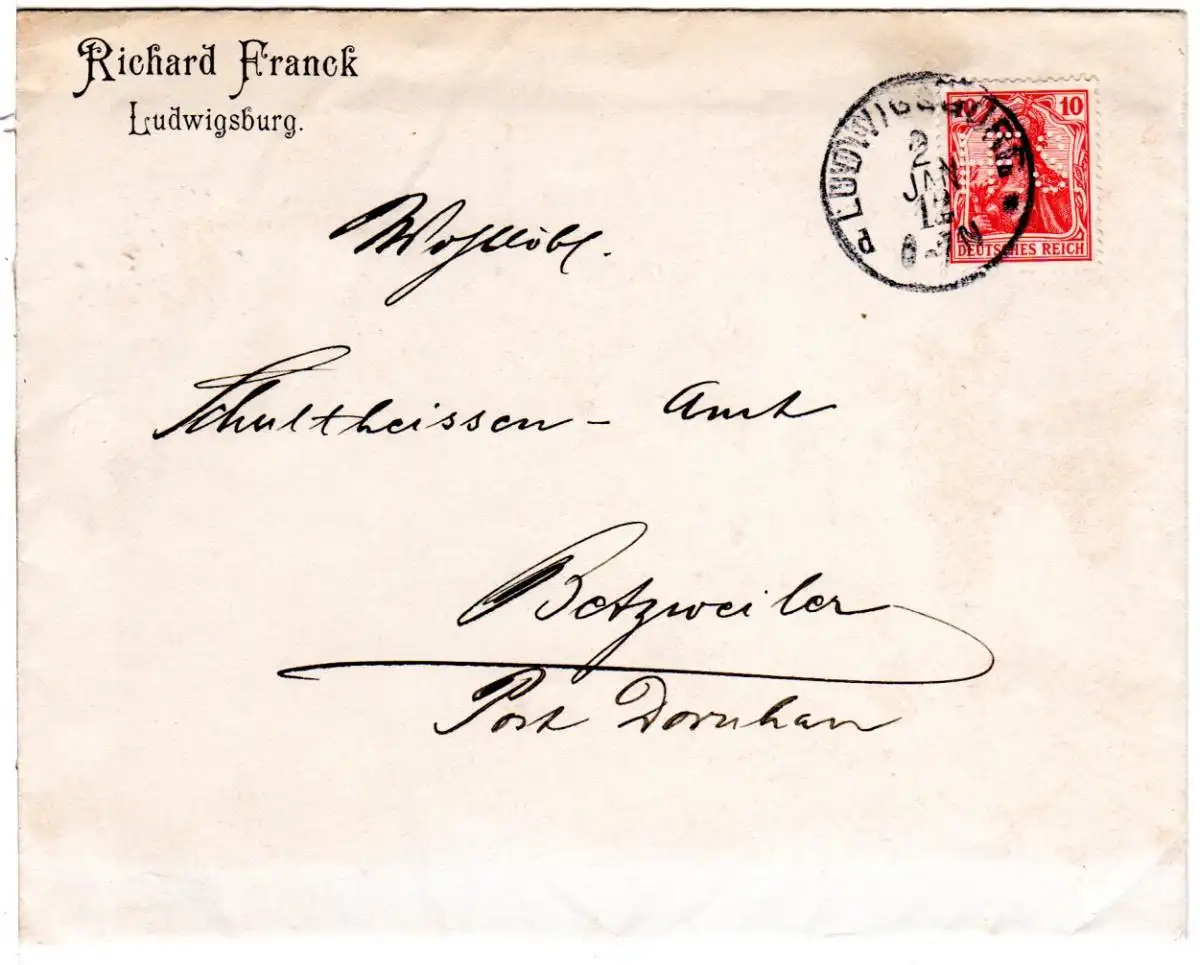 Richard Franck
Ludwigsburg.
LUDWIGSBURG
2
JAN
12
6-7N
10
DEUTSCHES REICH
Wohllöbl.
Schultheissen - Amt
Betzweiler
Post Dornhan